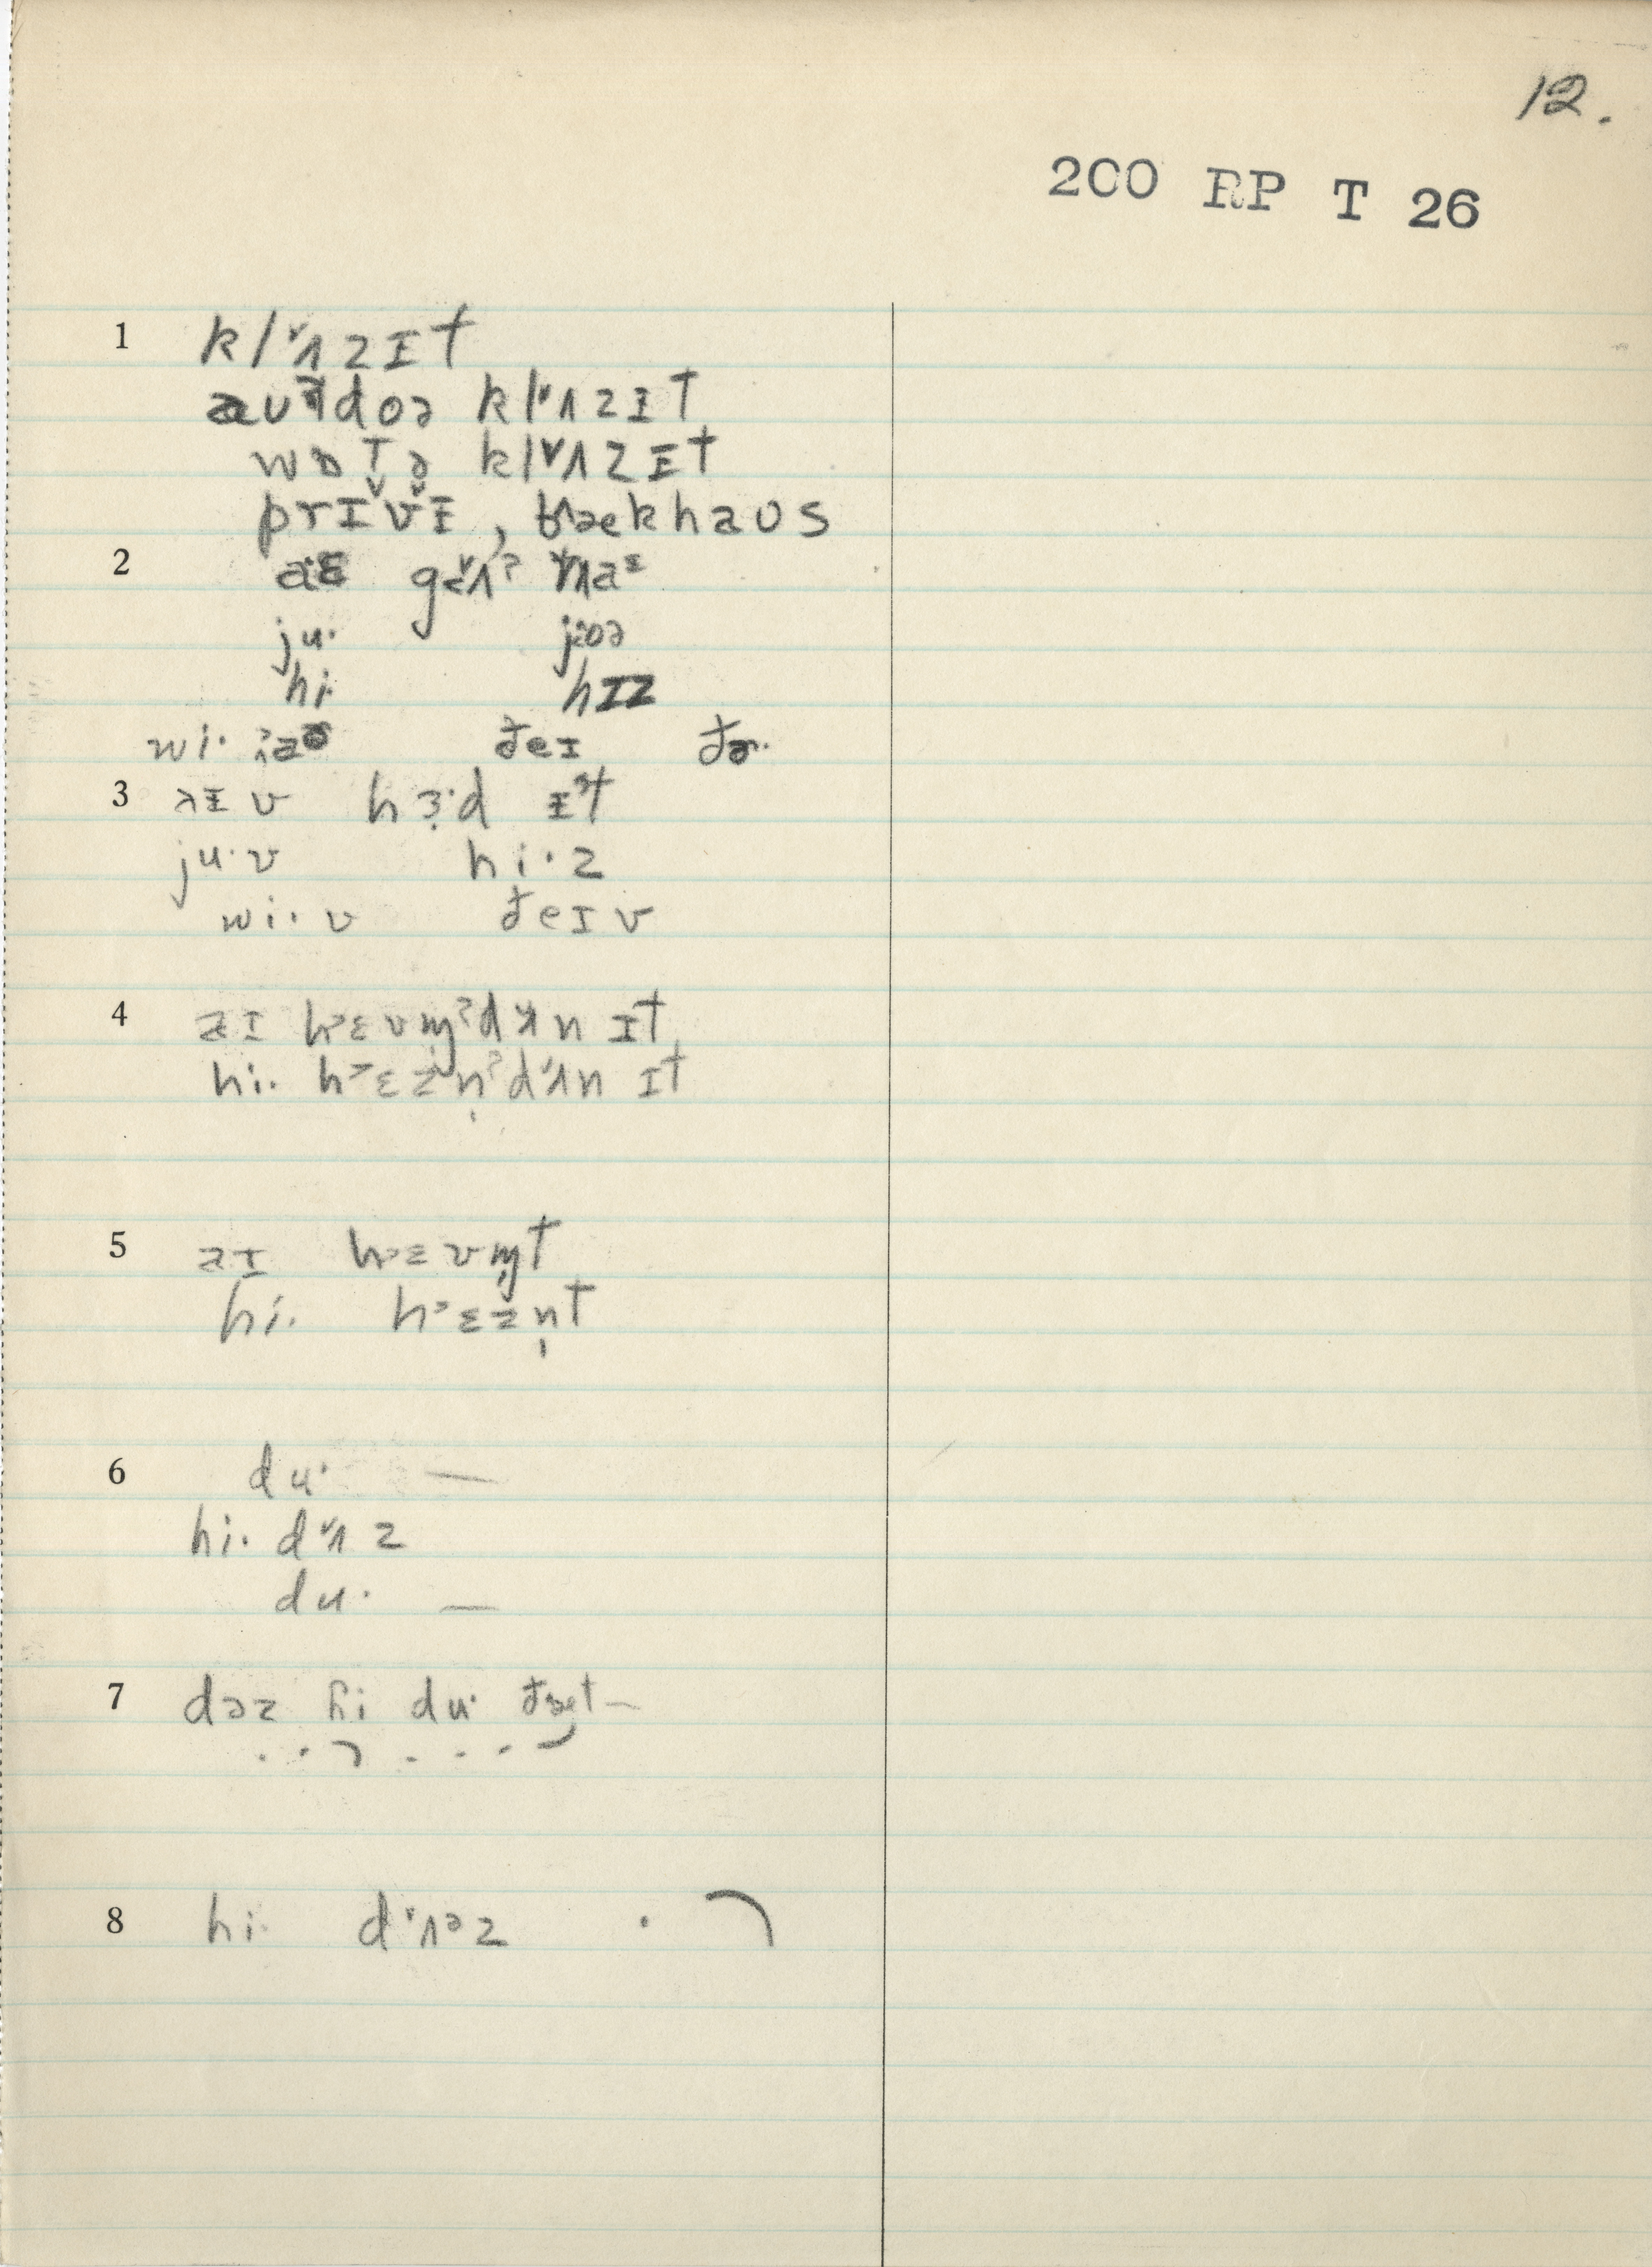 12.
200 RP T 26
1 klʌzɪt
aʊtdoə klʌzɪt
wɒtə klʌzɪt
prɪvɪ, bækhaus
2 aɛ
ju· joə
hi· hɪz
wi· ðeɪ
3 aɪv hɜ·d ɪt
ju·v hi·z
wi·v ðeɪv
4 aɪ hɛvm̩ˀdʌn ɪt
hi· hɛzn̩ˀdʌn ɪt
5 aɪ hɛvm̩t
hi· hɛzn̩t
6 du· —
hi· dʌz
du· —
7 dəz hi du· ðæt —
8 hi· dʌəz